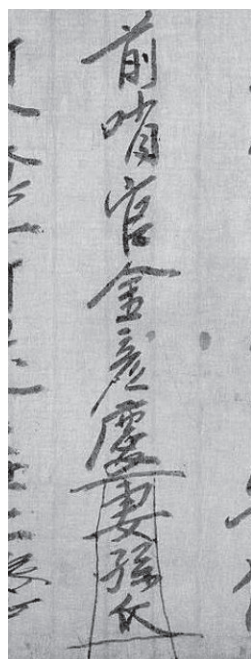 前哨官金彦慶妻孫氏